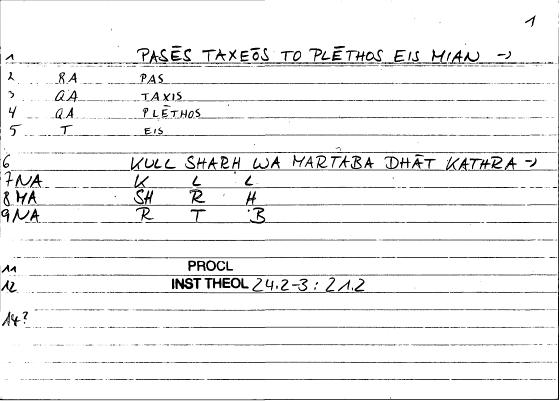 1
1 PASĒS TAXEŌS TO PLĒTHOS EIS MIAN →
2 RA PAS
3 QA TAXIS
4 QA PLĒTHOS
5 T EIS
6 KULL SHARH WA MARTABA DHĀT KATHRA →
7 NA K L L
8 MA SH R H
9 NA R T B
11 PROCL
12 INST THEOL 24.2-3 : 21.2
14?